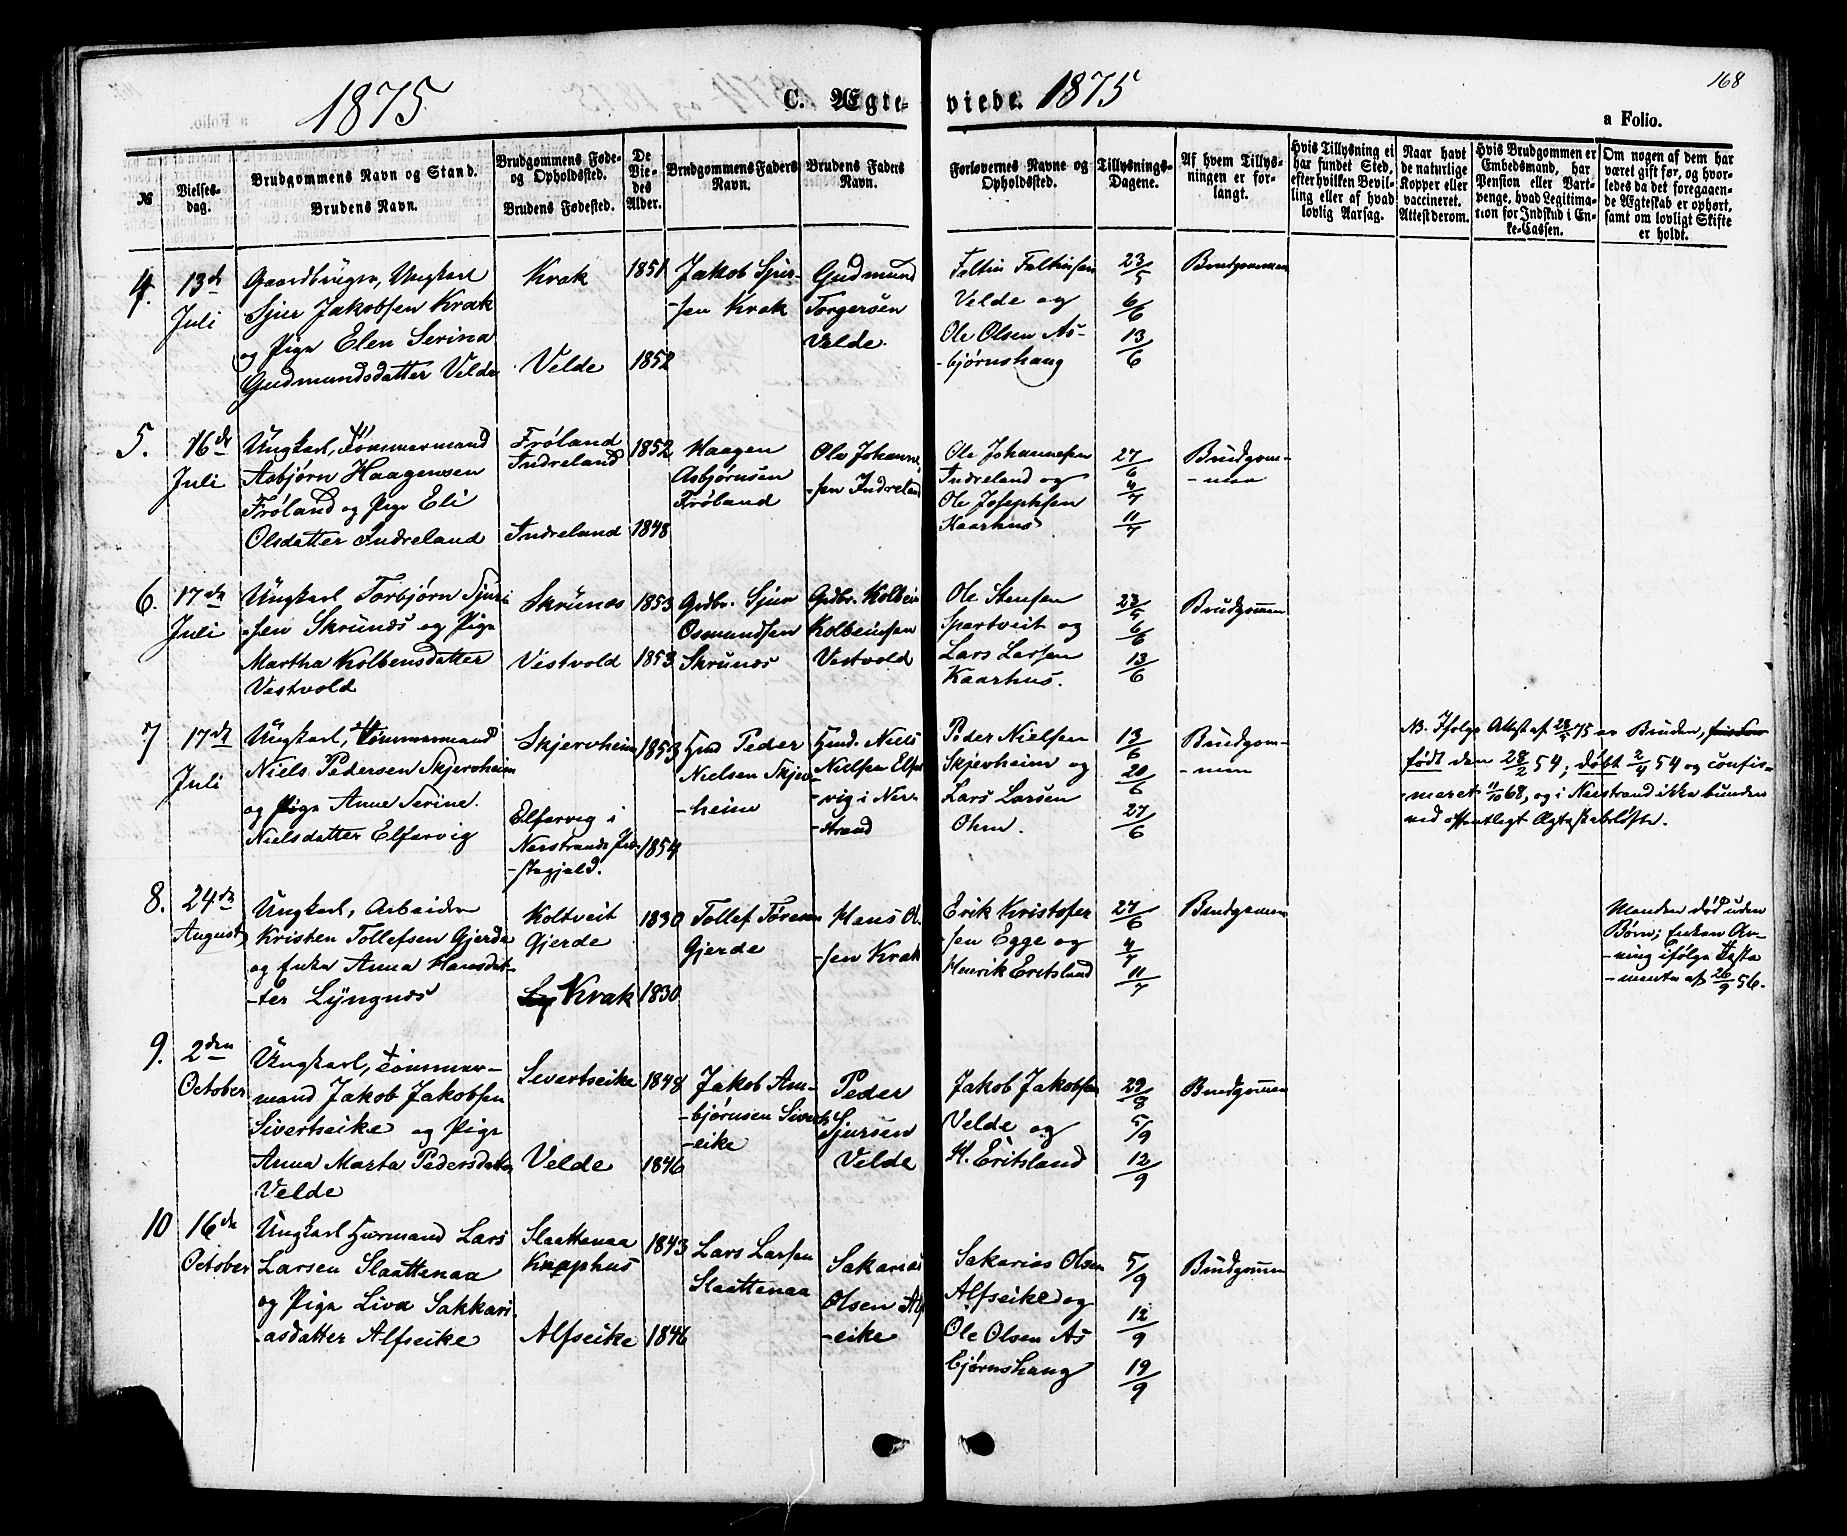 1875
C. Ægte-viede.
1875
168
a Folio.
№
Vielses-
dag.
Brudgommens Navn og Stand.
Brudens Navn.
Brudgommens Føde-
og Opholdssted.
Brudens Fødested.
De
Vie-
des
Alder.
Brudgommens Faders
Navn.
Brudens Faders
Navn.
Forlovernes Navne og
Opholdssted.
Tillysnings-
Dagene.
Af hvem Tillys-
ningen er for-
langt.
Hvis Tillysning ei
har fundet Sted,
efter hvilken Bevil-
ling eller af hvad
lovlig Aarsag.
Naar havt
de naturlige
Kopper eller
vaccineret.
Attest derom.
Hvis Brudgommen er
Embedsmand, har
Pension eller Vart-
penge, hvad Legitima-
tion for Indskud i En-
ke-Cassen.
Om nogen af dem har
været gift før, og hvor-
ledes da det foregaaen-
de Ægteskab er ophørt,
samt om lovligt Skifte
er holdt.
4.
13de
Juli
Gaardbruger, Ungkarl
Sjur Jakobsen Krak
og Pige Elen Serina
Gudmundsdatter Velde
Krak
Velde
1851
1852
Jakob Sjur-
-sen Krak
Gudmund
Torgersen
Velde.
Foltin Foltinsen
Velde og
Ole Olsen As-
-bjørnshaug
23/5
6/6
13/6
Brudgommen
5.
16de
Juli
Ungkarl, Tømmermand
Asbjørn Haagensen
Frøland og Pige Eli
Olsdatter Indreland
Frøland
Indreland
Indreland
1852
1848
Haagen
Asbjørnsen
Frøland
Ole Johanne-
-sen Indreland
Ole Johannesen
Indreland og
Ole Josephsen
Kaarhus
27/6
4/7
11/7
Brudgom-
-men
6.
17de
Juli
Ungkarl Torbjørn Sjur-
-sen Skrunes og Pige
Martha Kolbensdatter
Vestvold
Skrunes
Vestvold
1853
1853
Grdbr. Sjur
Osmundsen
Skrunes
Grdbr. Kolbein
Kolbeinsen
Vestvold
Ole Stensen
Spartveit og
Lars Larsen
Kaarhus.
23/5
6/6
13/6
Brudgommen
7
17de
Juli
Ungkarl, Tømmermand
Niels Pedersen Skjervheim
og Pige Anne Serine
Nielsdatter Elfarvig
Skjervheim
Elfarvig i
Nerstrands Præ-
-stegjeld.
1853
1854
Hmd Peder
Nielsen Skjerv-
-heim
Hmd. Niels
Nielsen Elfar-
-vig i Ner-
-strand
Peder Nielsen
Skjervheim og
Lars Larsen
Ohm.
13/6
20/6
27/6
Brudgom-
-men
NB. Ifølge Attest af 23/5 75 er Bruden,
født den 28/2 54; døbt 2/4 54 og confir-
-meret 11/10 68, og i Nerstrand ikke bunden
ved offentligt Ægteskabsløfte.
8.
24de
August
Ungkarl, Arbeider
Kristen Tollefsen Gjerde
og Enke Anna Hansdat-
-ter Lyngnes
Koltveit
Gjerde
Krak
1830
1830
Tollef Tøresen
Gjerde
Hans Ol-
-sen Krak
Erik Kristofer-
-sen Egge og
Henrik Eritsland
27/6
4/7
11/7
Brudgommen
Manden død uden
Børn; Enken Ar-
-ving ifølge Testa-
-mente af 26/9 56.
9.
2den
October
Ungkarl, Tømmer-
mand Jakob Jakobsen
Sivertseike og Pige
Anna Marta Pedersdatter
Velde
Sivertseike
Velde
1848
1846
Jakob Am-
-bjørnsen Siverts-
-eike
Peder
Sjursen
Velde
Jakob Jakobsen
Velde og
H. Eritsland
29/8
5/9
12/9
Brudgommen
10
16de
October
Ungkarl Huusmand Lars
Larsen Slaattenaa
og Pige Liva Sakkari-
-asdatter Alfseike
Slaattenaa
Knaphus
Alfseike
1843
1846
Lars Larsen
Slaattenaa
Sakarias
Olsen Alf-
-eike
Sakarias Olsen
Alfseike og
Ole Olsen As-
bjørnshaug
5/9
12/9
19/9
Brudgommen